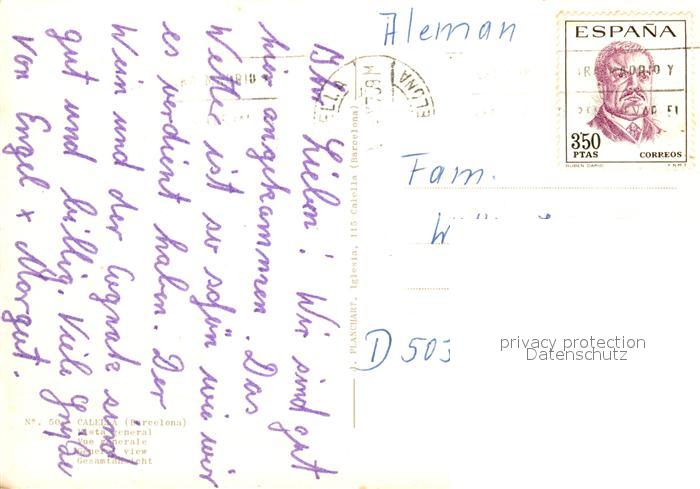 Ihr Lieben! Wir sind gut
hier angekommen. Das
Wetter ist so schön wie wir
es verdient haben. Der
Wein und der Cognak sind
gut und billig. Viele Grüße
Von Engel + Margret.
Nº. 50 CALELLA (Barcelona)
Vista general
Vue generale
General view
Gesamtansicht
J. PLANCHART, Iglesia, 115 Calella (Barcelona)
Aleman
ESPAÑA
3'50
PTAS
CORREOS
RUBEN DARIO
F.N.M.T.
Fam.
D 503
privacy protection
Datenschutz